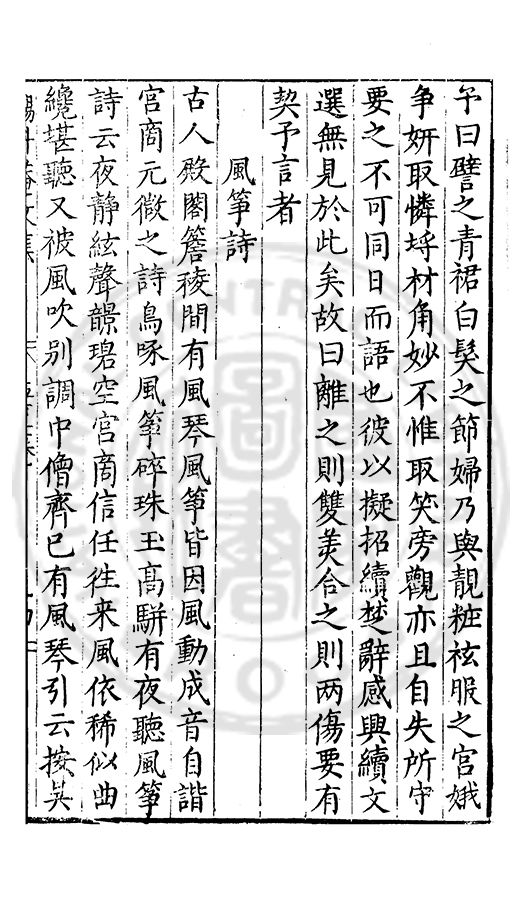 予曰譬之青裙白髮之節婦乃與靚粧袨服之宮娥
争妍取憐埒材角妙不惟取笑旁觀亦且自失所守
要之不可同日而語也彼以擬招續楚辭感興續文
選無見於此矣故曰離之則雙美合之則两傷要有
契予言者
風箏詩
古人殿閣簷稜間有風琴風箏皆因風動成音自諧
宮商元微之詩鳥啄風箏碎珠玉高駢有夜聽風箏
詩云夜静絃聲響碧空宮商信任徃来風依稀似曲
纔堪聽又被風吹别調中僧齊已有風琴引云挼吳